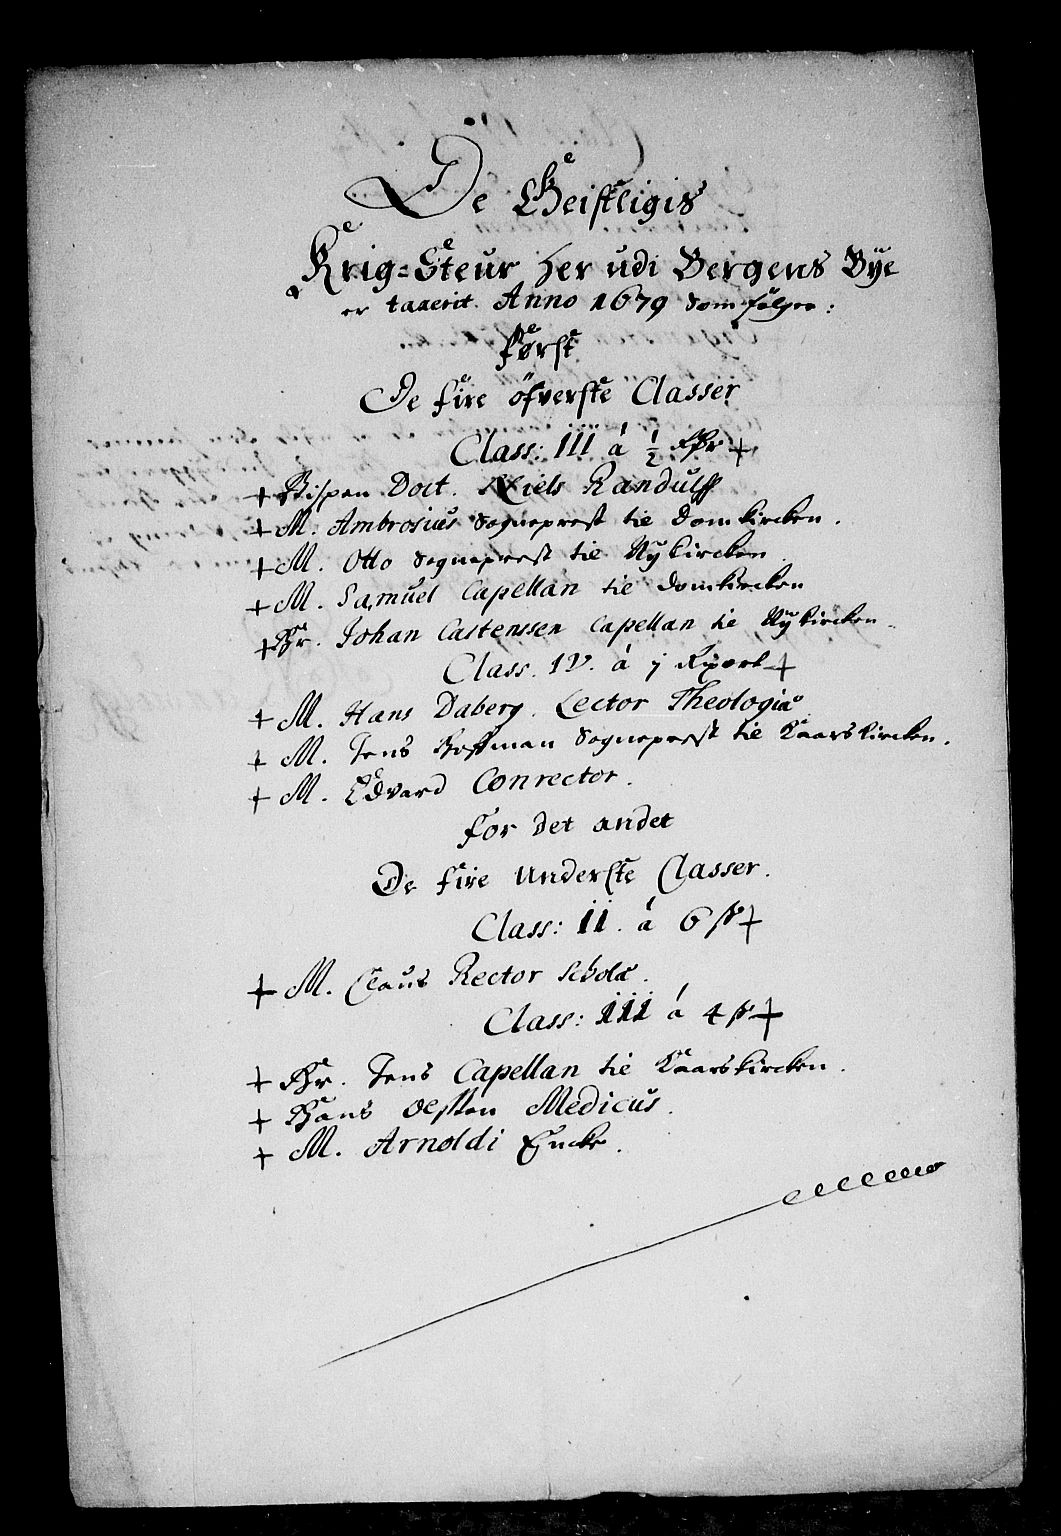 De Geistligis
Krig=Steur her udi Bergens Bye
er taxerit Anno 1679 som følger:
Først
De fire öfverste Classer
Class: III á ½ Rdr
Bispen Doct. Niels Randulff
M. Ambrosius Sogneprest til Domkircken.
M. Otto Sogneprest til Nykircken.
M. Samuel Capellan til Domkircken
Hr. Johan Castenssen Capellan til Nykircken.
Class. IV. á j
M. Hans Daberg. Lector Theologiæ
M. Jens Hoffman Sogneprest til Kaarskircken.
M. Edvard Conrector.
for det andet
De fire Underste Classer.
Class: II. á 6
M. Claus Rector Scholæ.
Class: III á 4
Hr. Jens Capellan til Kaarskircken.
Hans Medicus.
M. Arnoldi Encke.